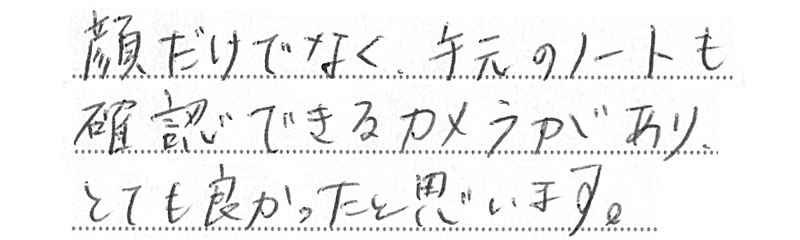 顔だけでなく、手元のノートも
確認できるカメラがあり、
とても良かったと思います。